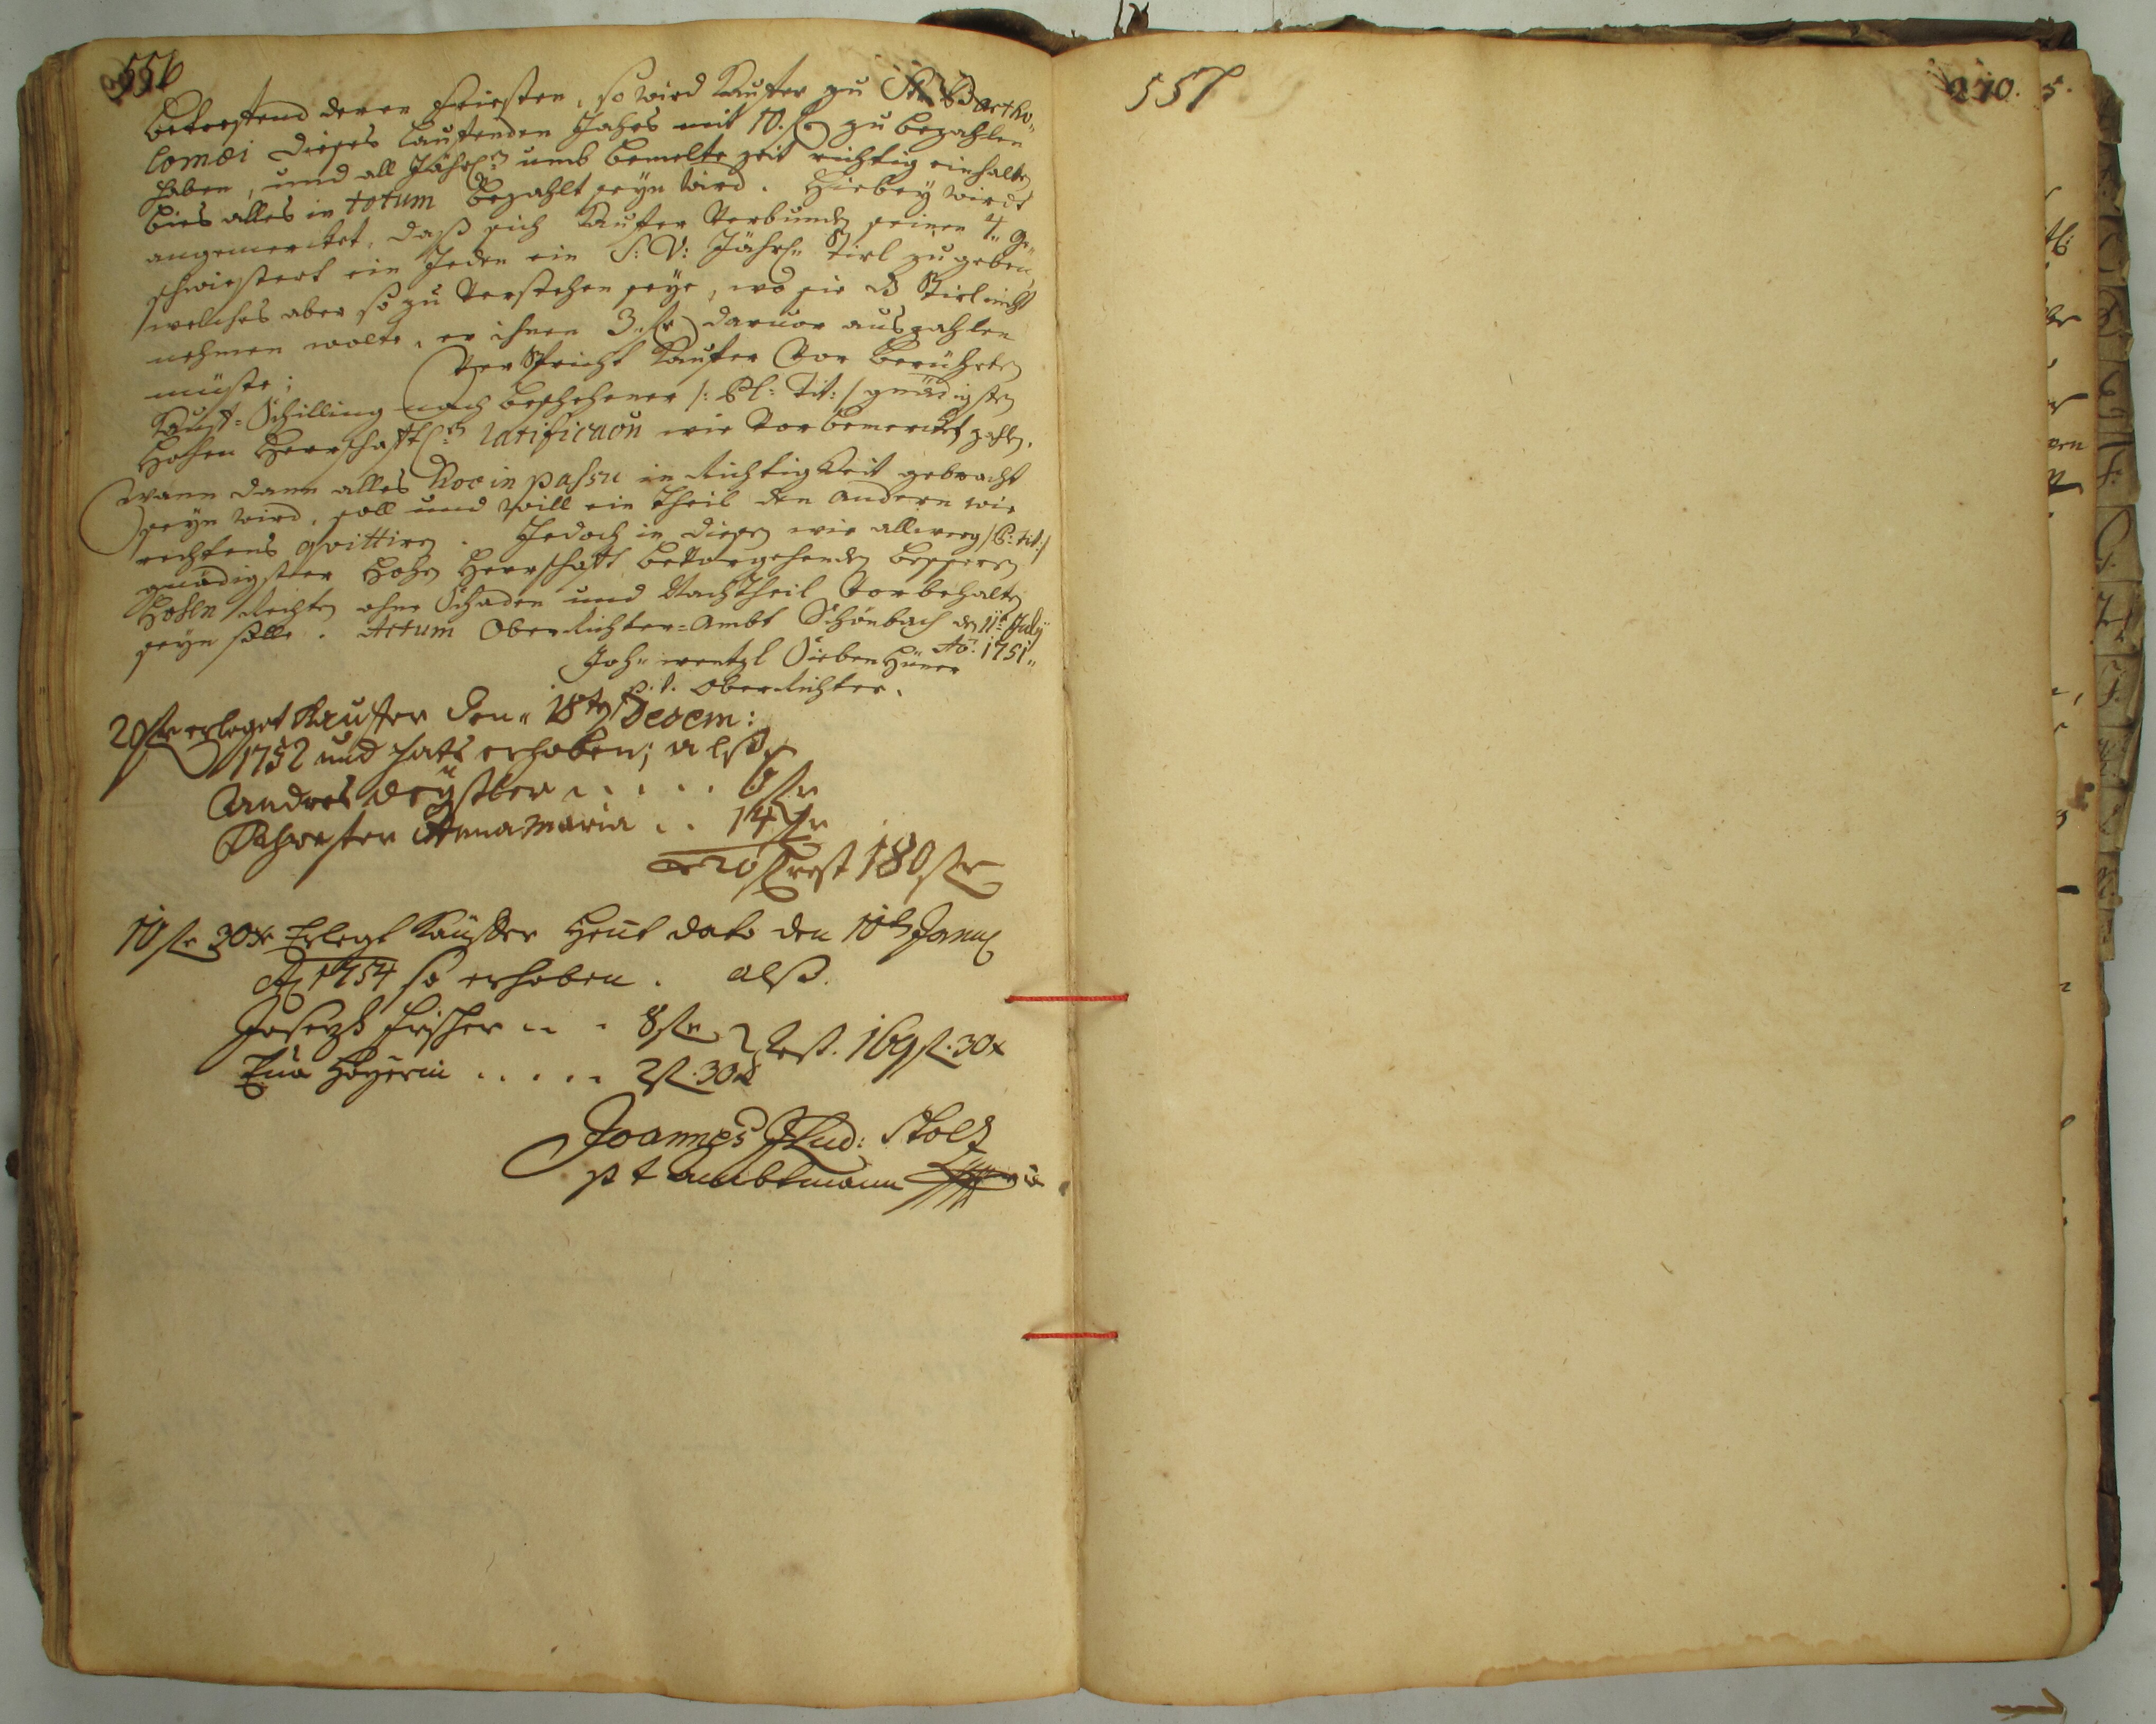 556
betrefend deren Friesten, so wird Kaufer zu St: Bartho„
lomæi dieses laufenden Jahrs mit 10. fl: zu bezahlen
haben, und all Jährl: umb bemelte zeit richtig einhalten
bies alles in totum bezahlt seyn wird. Hiebey wirdt
angemercket, daß sich Kaufer Verbunden seinen 4„ Ge„
schwiestert ein Jeden ein S: V: Jährl: Stirl zu geben,
welches aber so zu Verstehen seye, wo sie d Stirl nicht
nehmen wolte, er ihnen 3„ fl daruor auszahlen
müste; Verspricht Kaufer Vor berührten
Kauf-Schilling nach beschehener /: Pl: Tit: / gnädigsten
Hohen Herrschaftl: ratification wie Vorbemercket zahlen.
Wann dann alles hoc in passu in Richtigkeit gebracht
seyn wird, soll und will ein Theil den andern wie
rechtens qvittiren. Jedoch in diesen wie allweeg /P: tit:/
gnädigster Hohen Herrschaft bevorgehenden besseren
Hohen Rechten ohne Schaden und Nachtheil Vorbehalten
seyn solle. Actum Oberrichter-Ambt Schönbach den 11t July
Ao: 1751„
Joh„ wentzl Siebenhüner
p. t. Oberrichter.
20 fl erleget Kaufer den„ 18ten Decem:
1752 und hats erhoben; alß
Andres . . . . . 6 fl
Schwester Anna Maria . . 14 fl
20 fl rest 180 fl
10 fl 30 x Erlegt Kauffer Heut dato den 10t Janu
Ao 1754 so erhoben. alß.
Joseph Fischer . . . 8 fl
Eva . . . . . 2 fl. 30 x Rest. 169 fl. 30 x
Joannes Stolz
p t ambtmann
557
270.